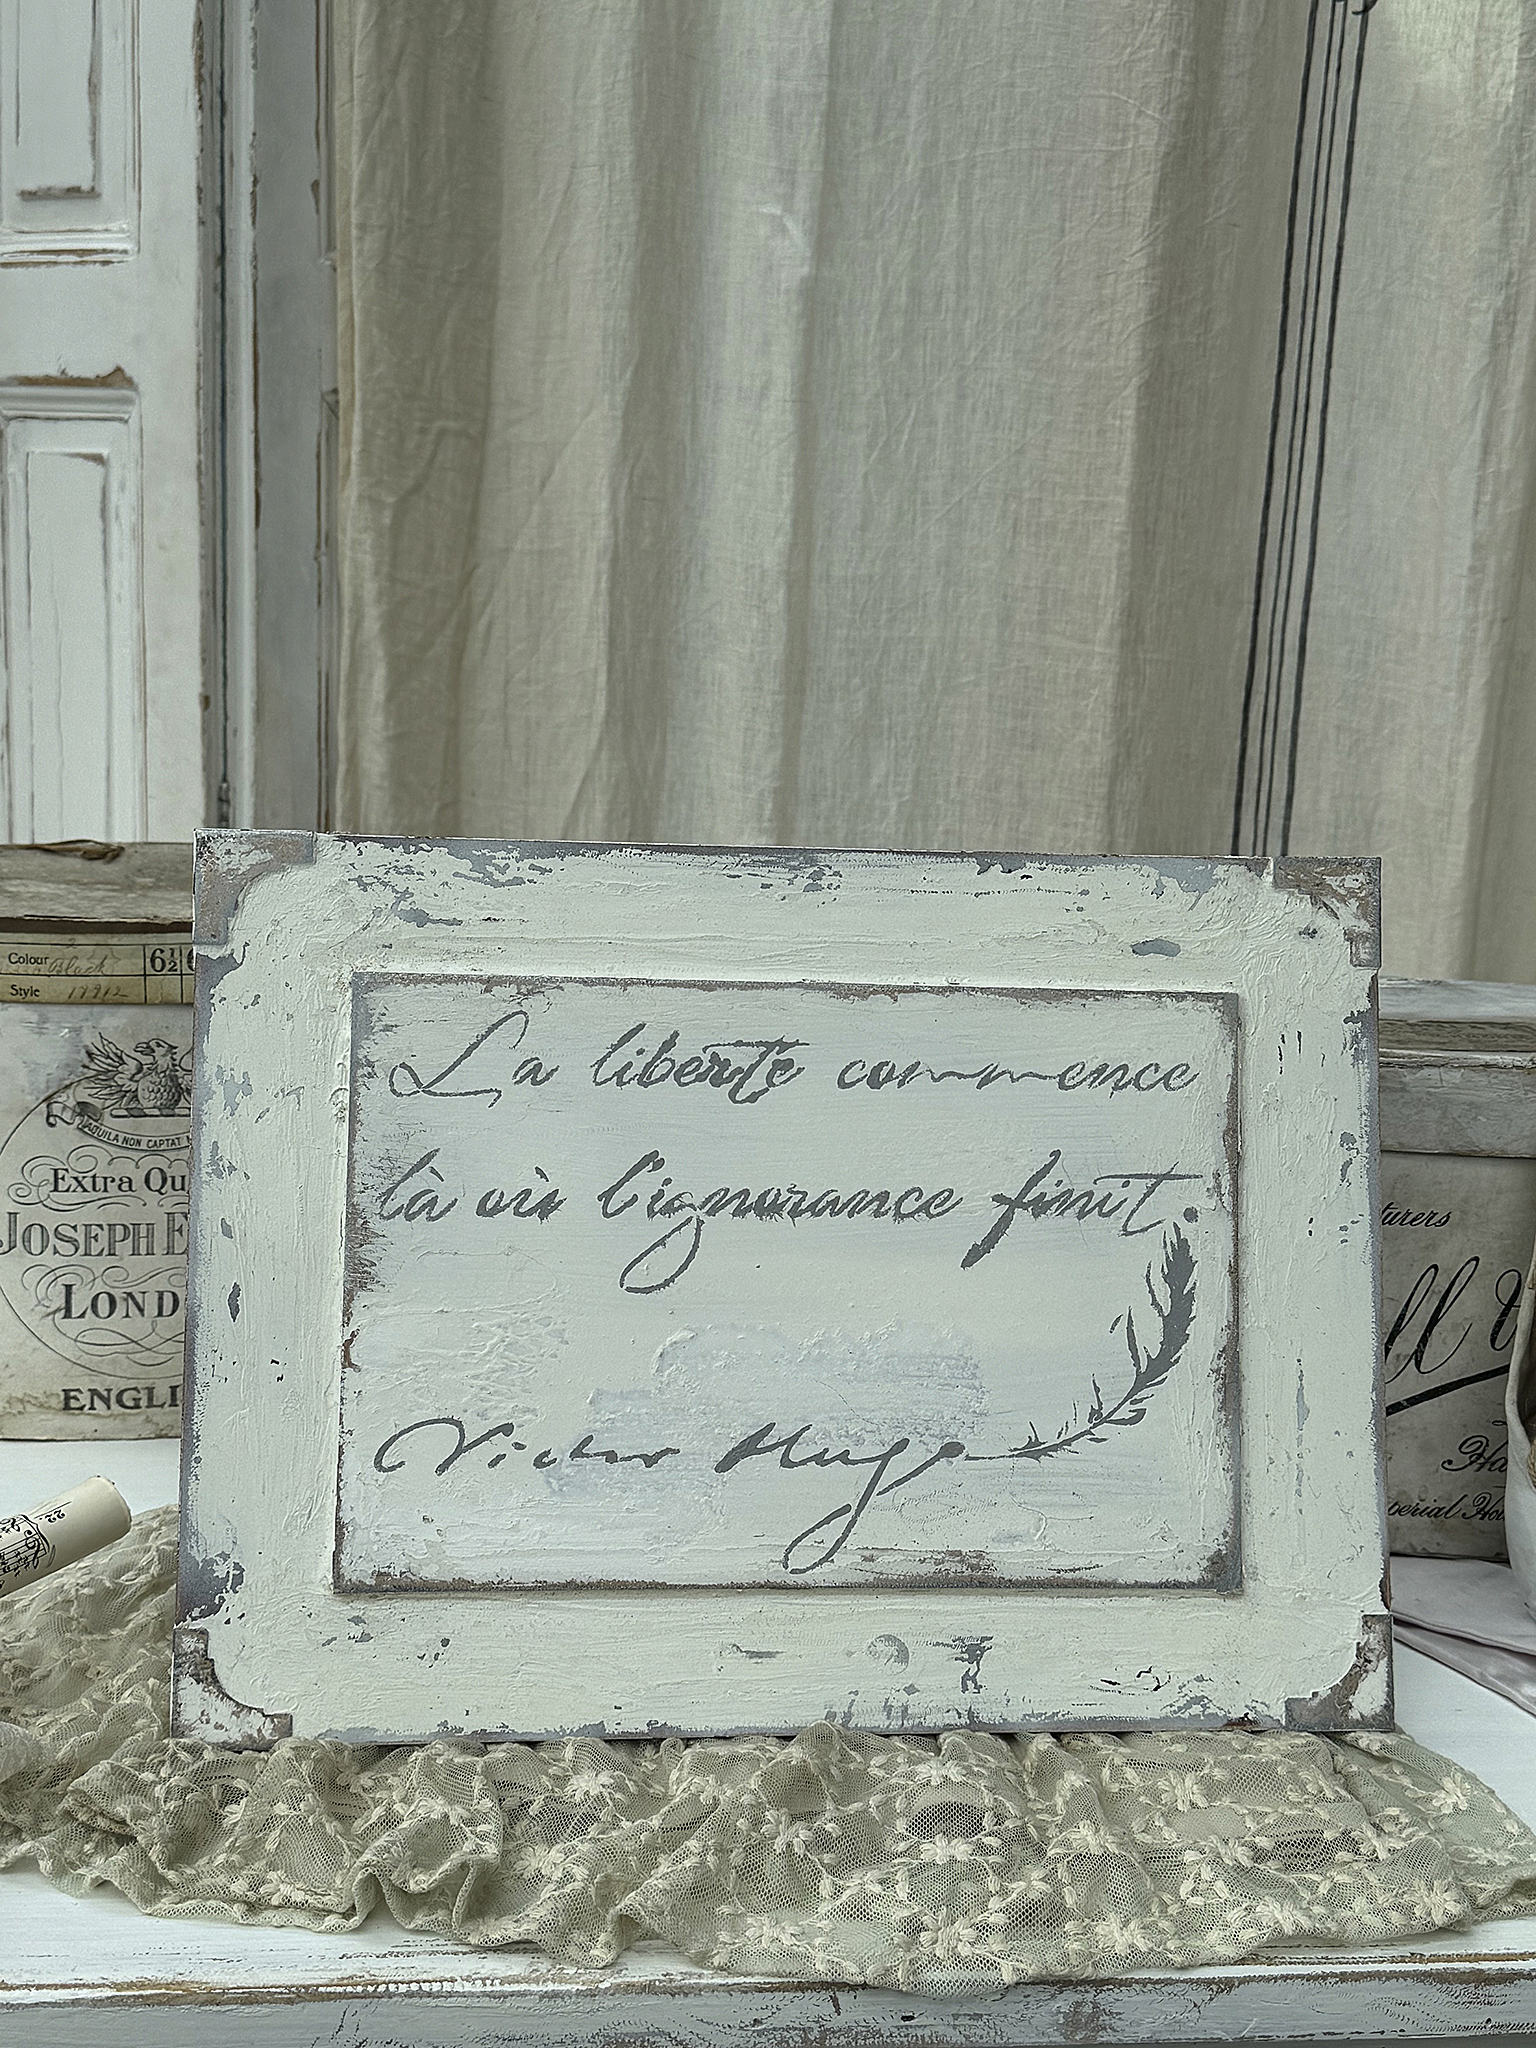 Colour Black 6½
Style 17912
AQUILA NON CAPTAT
Extra Qu
JOSEPH E
LOND
ENGLI
La liberté commence
là où l'ignorance finit.
Victor Hugo
turers
ll
Ha
perial Hou